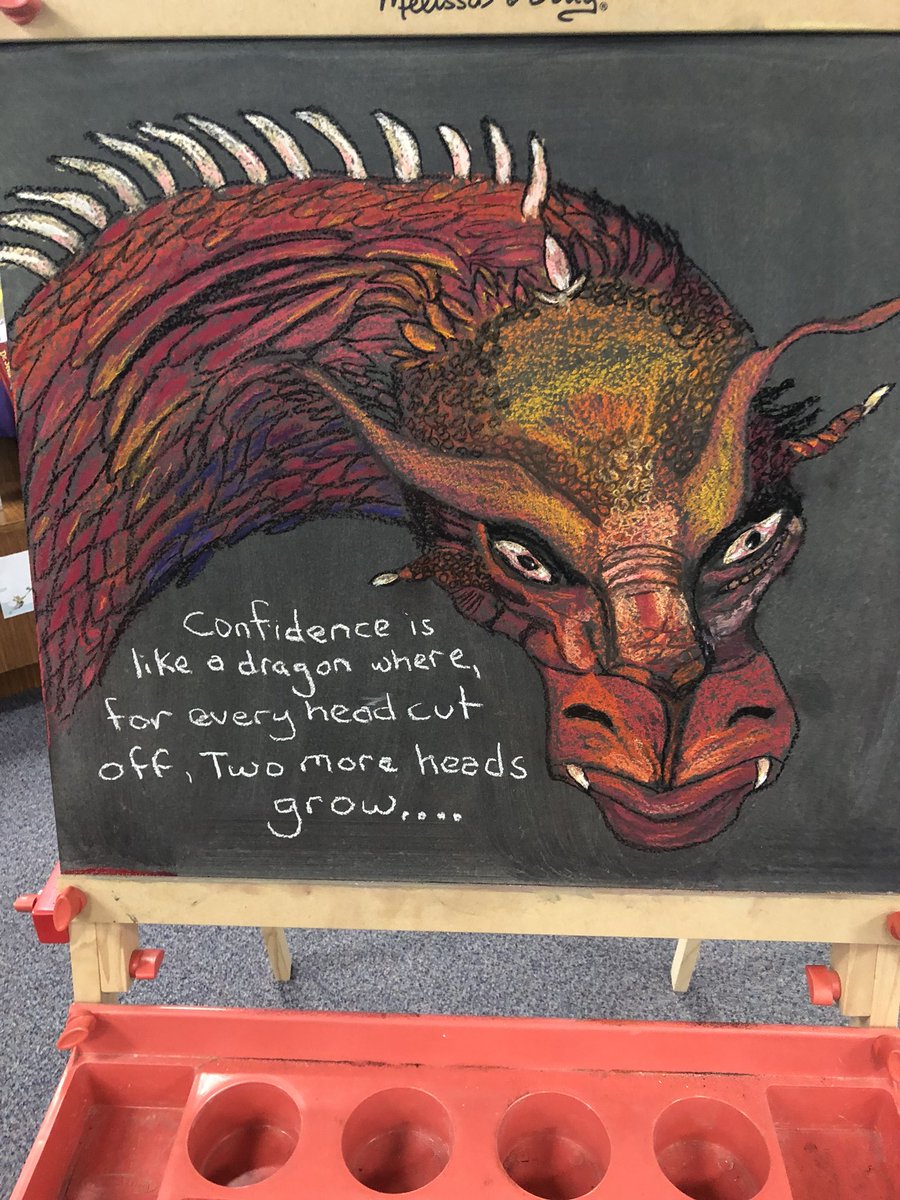 Melissa & Doug®
Confidence is
like a dragon where,
for every head cut
off, Two more heads
grow.....